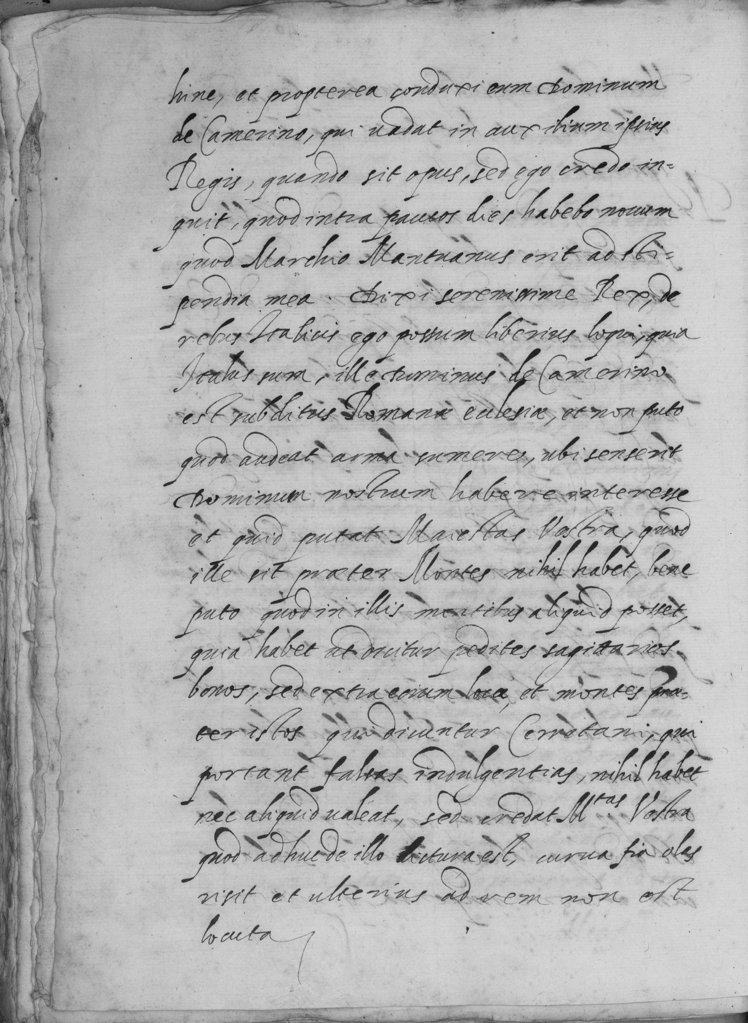 hine, et propterea conduxi eum Dominum
de Camerino, qui uadat in auxilium ipsius
Regis, quando sit opus, sed ego credo in=
quit, quod intra paucos dies habebo nouum
quod Marchio Mantuanus erit ad sti=
pendia mea. Dixi serenissime Rex, de
rebus Italicis ego possum liberius loqui, quia
Italus sum, ille Dominus de Camerino
est subditus Romanæ eclesiæ, et non puto
quod audeat arma sumeres, ubi senserit
Dominum nostrum habere interesse
et quid putat Maiestas Vostra, quod
ille sit præter Montes nihil habet, bene
puto quod in illis montibus aliquid posset,
quia habet ut dicitur pedites sagittarios
bonos, sed extra eorum loca, et montes præ=
ter istos qui dicuntur Cerretani, qui
portant falsas indulgentias, nihil habet
nec aliquid ualeat, sed credat M.tas Vostra
quod adhuc de illo est,
risit et ulterius ad rem non est
locuta